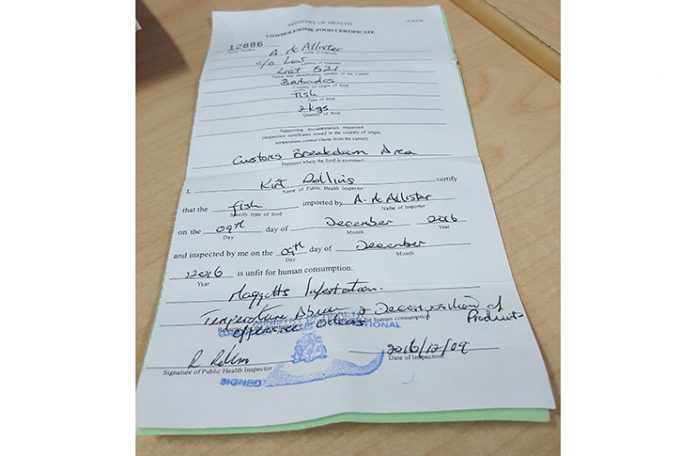 MINISTRY OF HEALTH
UNWHOLESOME FOOD CERTIFICATE
12886
A. McAllister
Name of Importer
c/o Liat
Address of Importer
Liat 521
Name and identification number of the Carrier
Barbados
Country of origin of food
Fish
Type of food
2kgs
Quantity of food
Supporting documentation requested
(inspection certificates issued in the country of origin,
temperature control charts from the carrier)
Customs Breakdown Area
Premises where the food is examined
I, Kirt Rollins certify
Name of Public Health Inspector
that the fish imported by A. McAllister
Specify type of food Name of Importer
on the 09th day of December 2016
Day Month Year
and inspected by me on the 09th day of December
Day Month
2016 is unfit for human consumption.
Year
Maggotts Infestation.
Temperature Abuse & Decomposition of Products
offensive Odours
for human consumption
MINISTRY OF HEALTH
2016/12/09
Signature of Public Health Inspector Date of Inspection
SIGNED